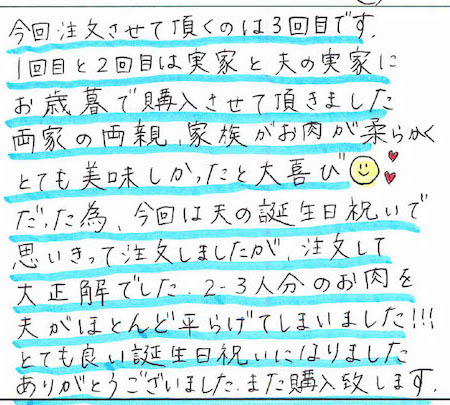 今回注文させて頂くのは3回目です.
1回目と2回目は実家と夫の実家に
お歳暮で購入させて頂きました
両家の両親、家族がお肉が柔らかく
とても美味しかったと大喜び
だった為、今回は夫の誕生日祝いで
思いきって注文しましたが、注文して
大正解でした. 2-3人分のお肉を
夫がほとんど平らげてしまいました!!!
とても良い誕生日祝いになりました
ありがとうございました.また購入致します.